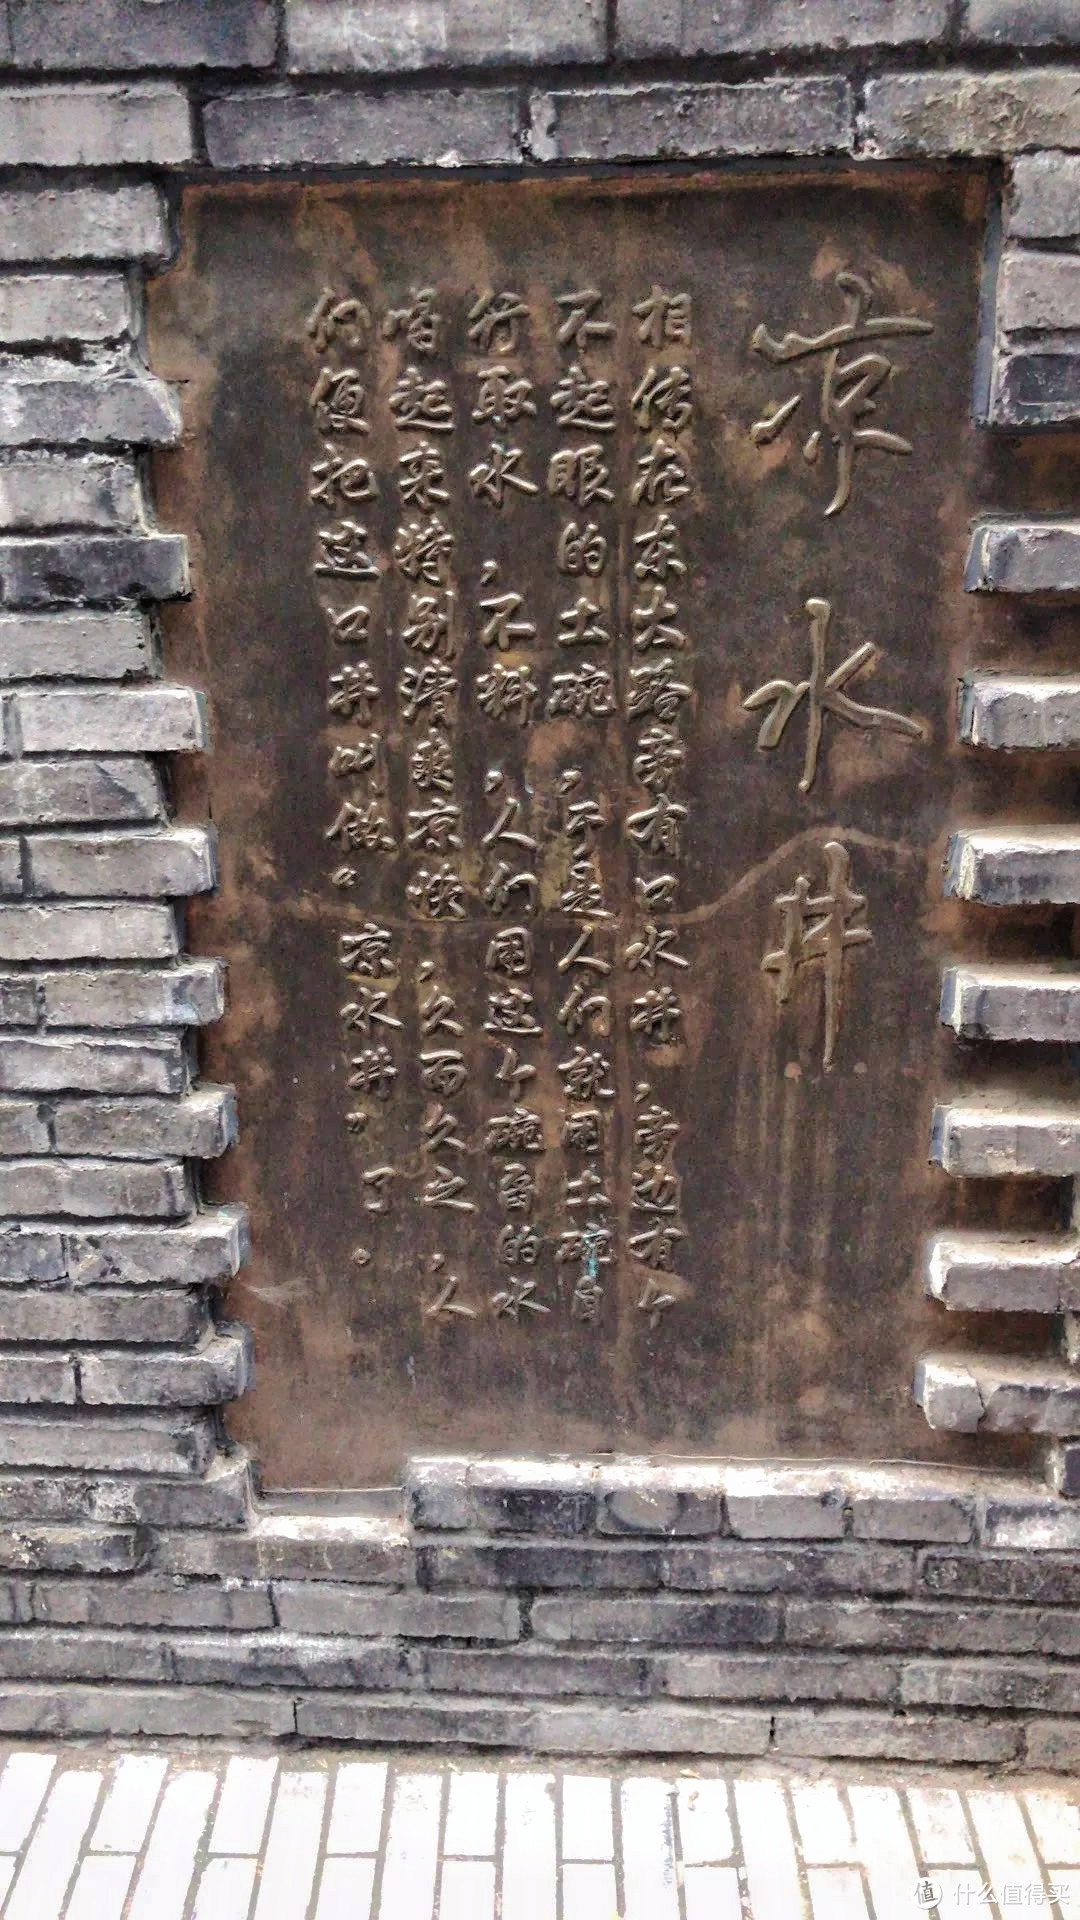 凉水井
相传在东大路旁有口水井，旁边有个
不起眼的土碗，于是人们就用土碗自
行取水，不料，人们用这个碗舀的水
喝起来特别清爽凉快，久而久之，人
们便把这口井叫做“凉水井”了。
值 什么值得买